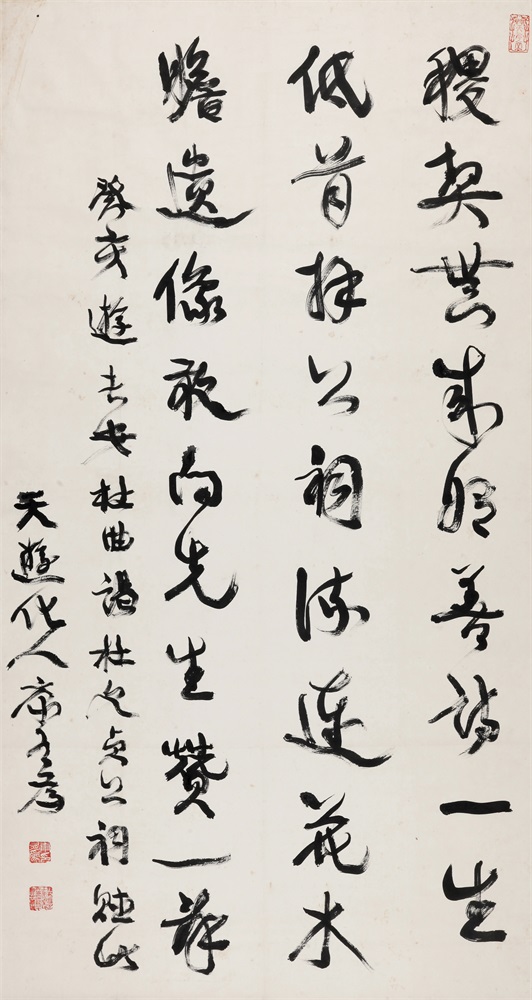 稷契善詩一生
低首拜公祠流連花木
瞻遺像敢向先生贊一辭
癸亥遊長安杜曲謁杜文貞公祠賦此
天遊化人康有為